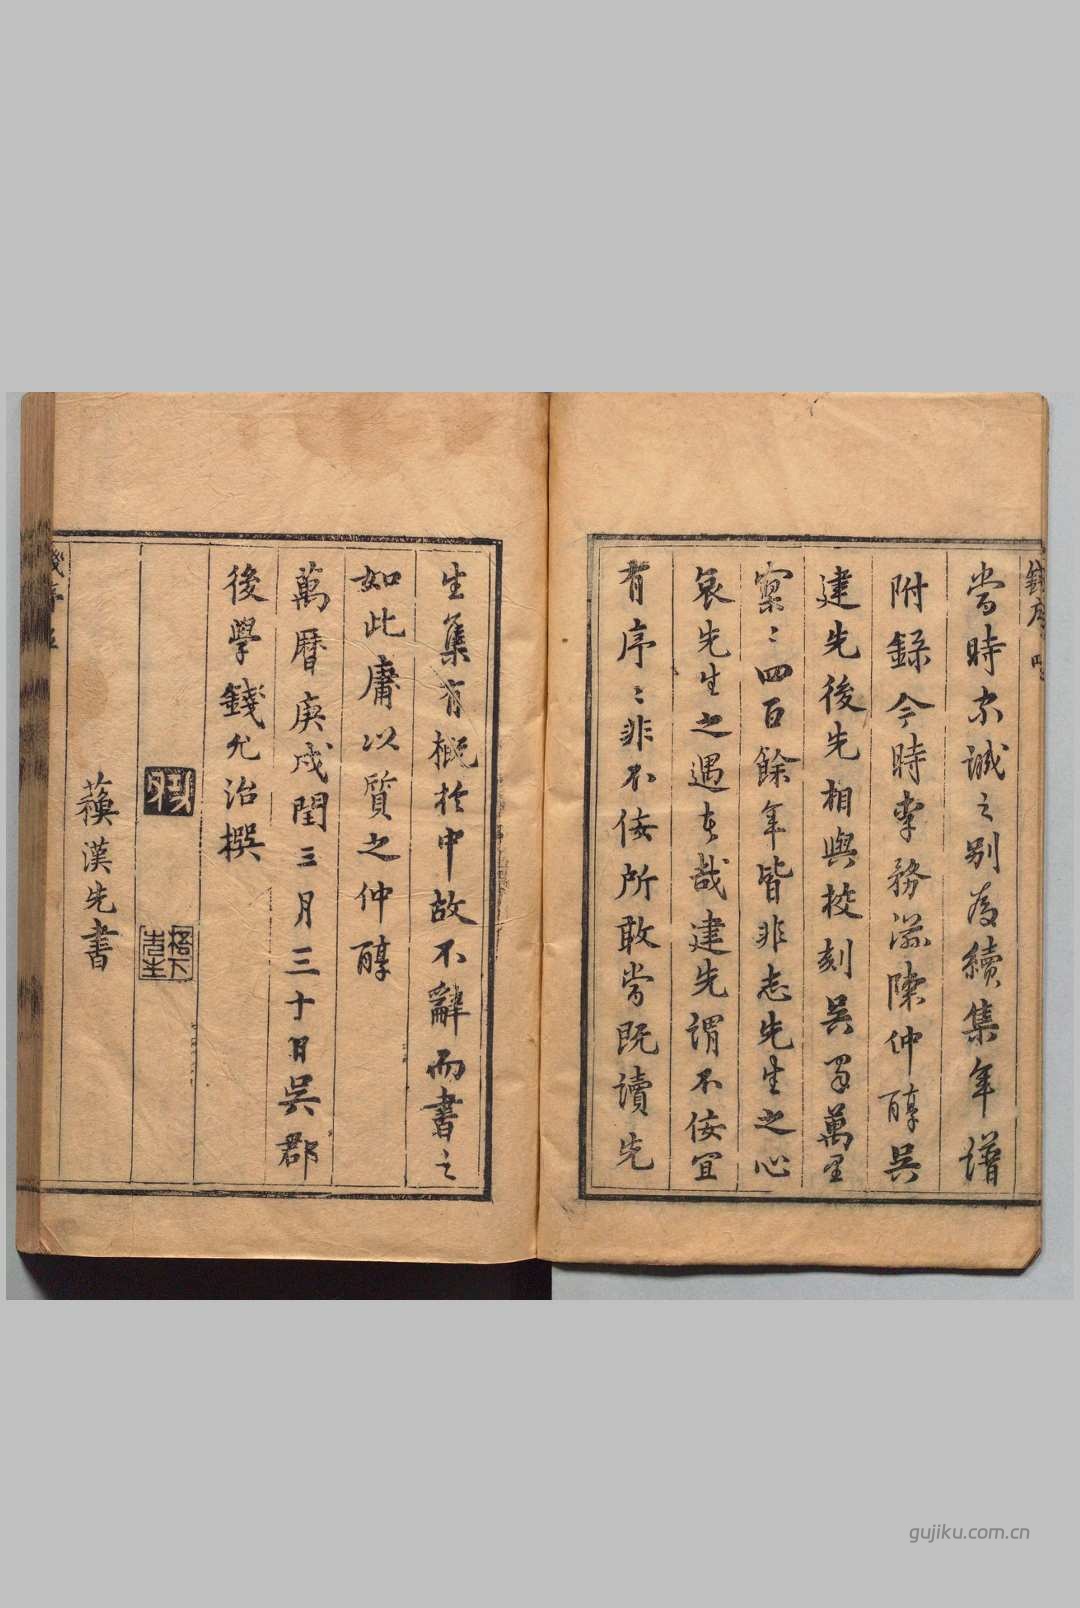 錢序 四
嘗時宗誠之別爲續集年譜
附錄今時李務滋陳仲醇吳
建先後先相與校刻吳蜀萬里
寥〻四百餘年皆非志先生之心
哀先生之遇者哉建先謂不佞宜
有序〻非不佞所敢當既讀先
生集有概於中故不辭而書之
如此庸以質之仲醇
萬曆庚戌閏三月三十日吳郡
後學錢允治撰
蘋漢先書
gujiku.com.cn